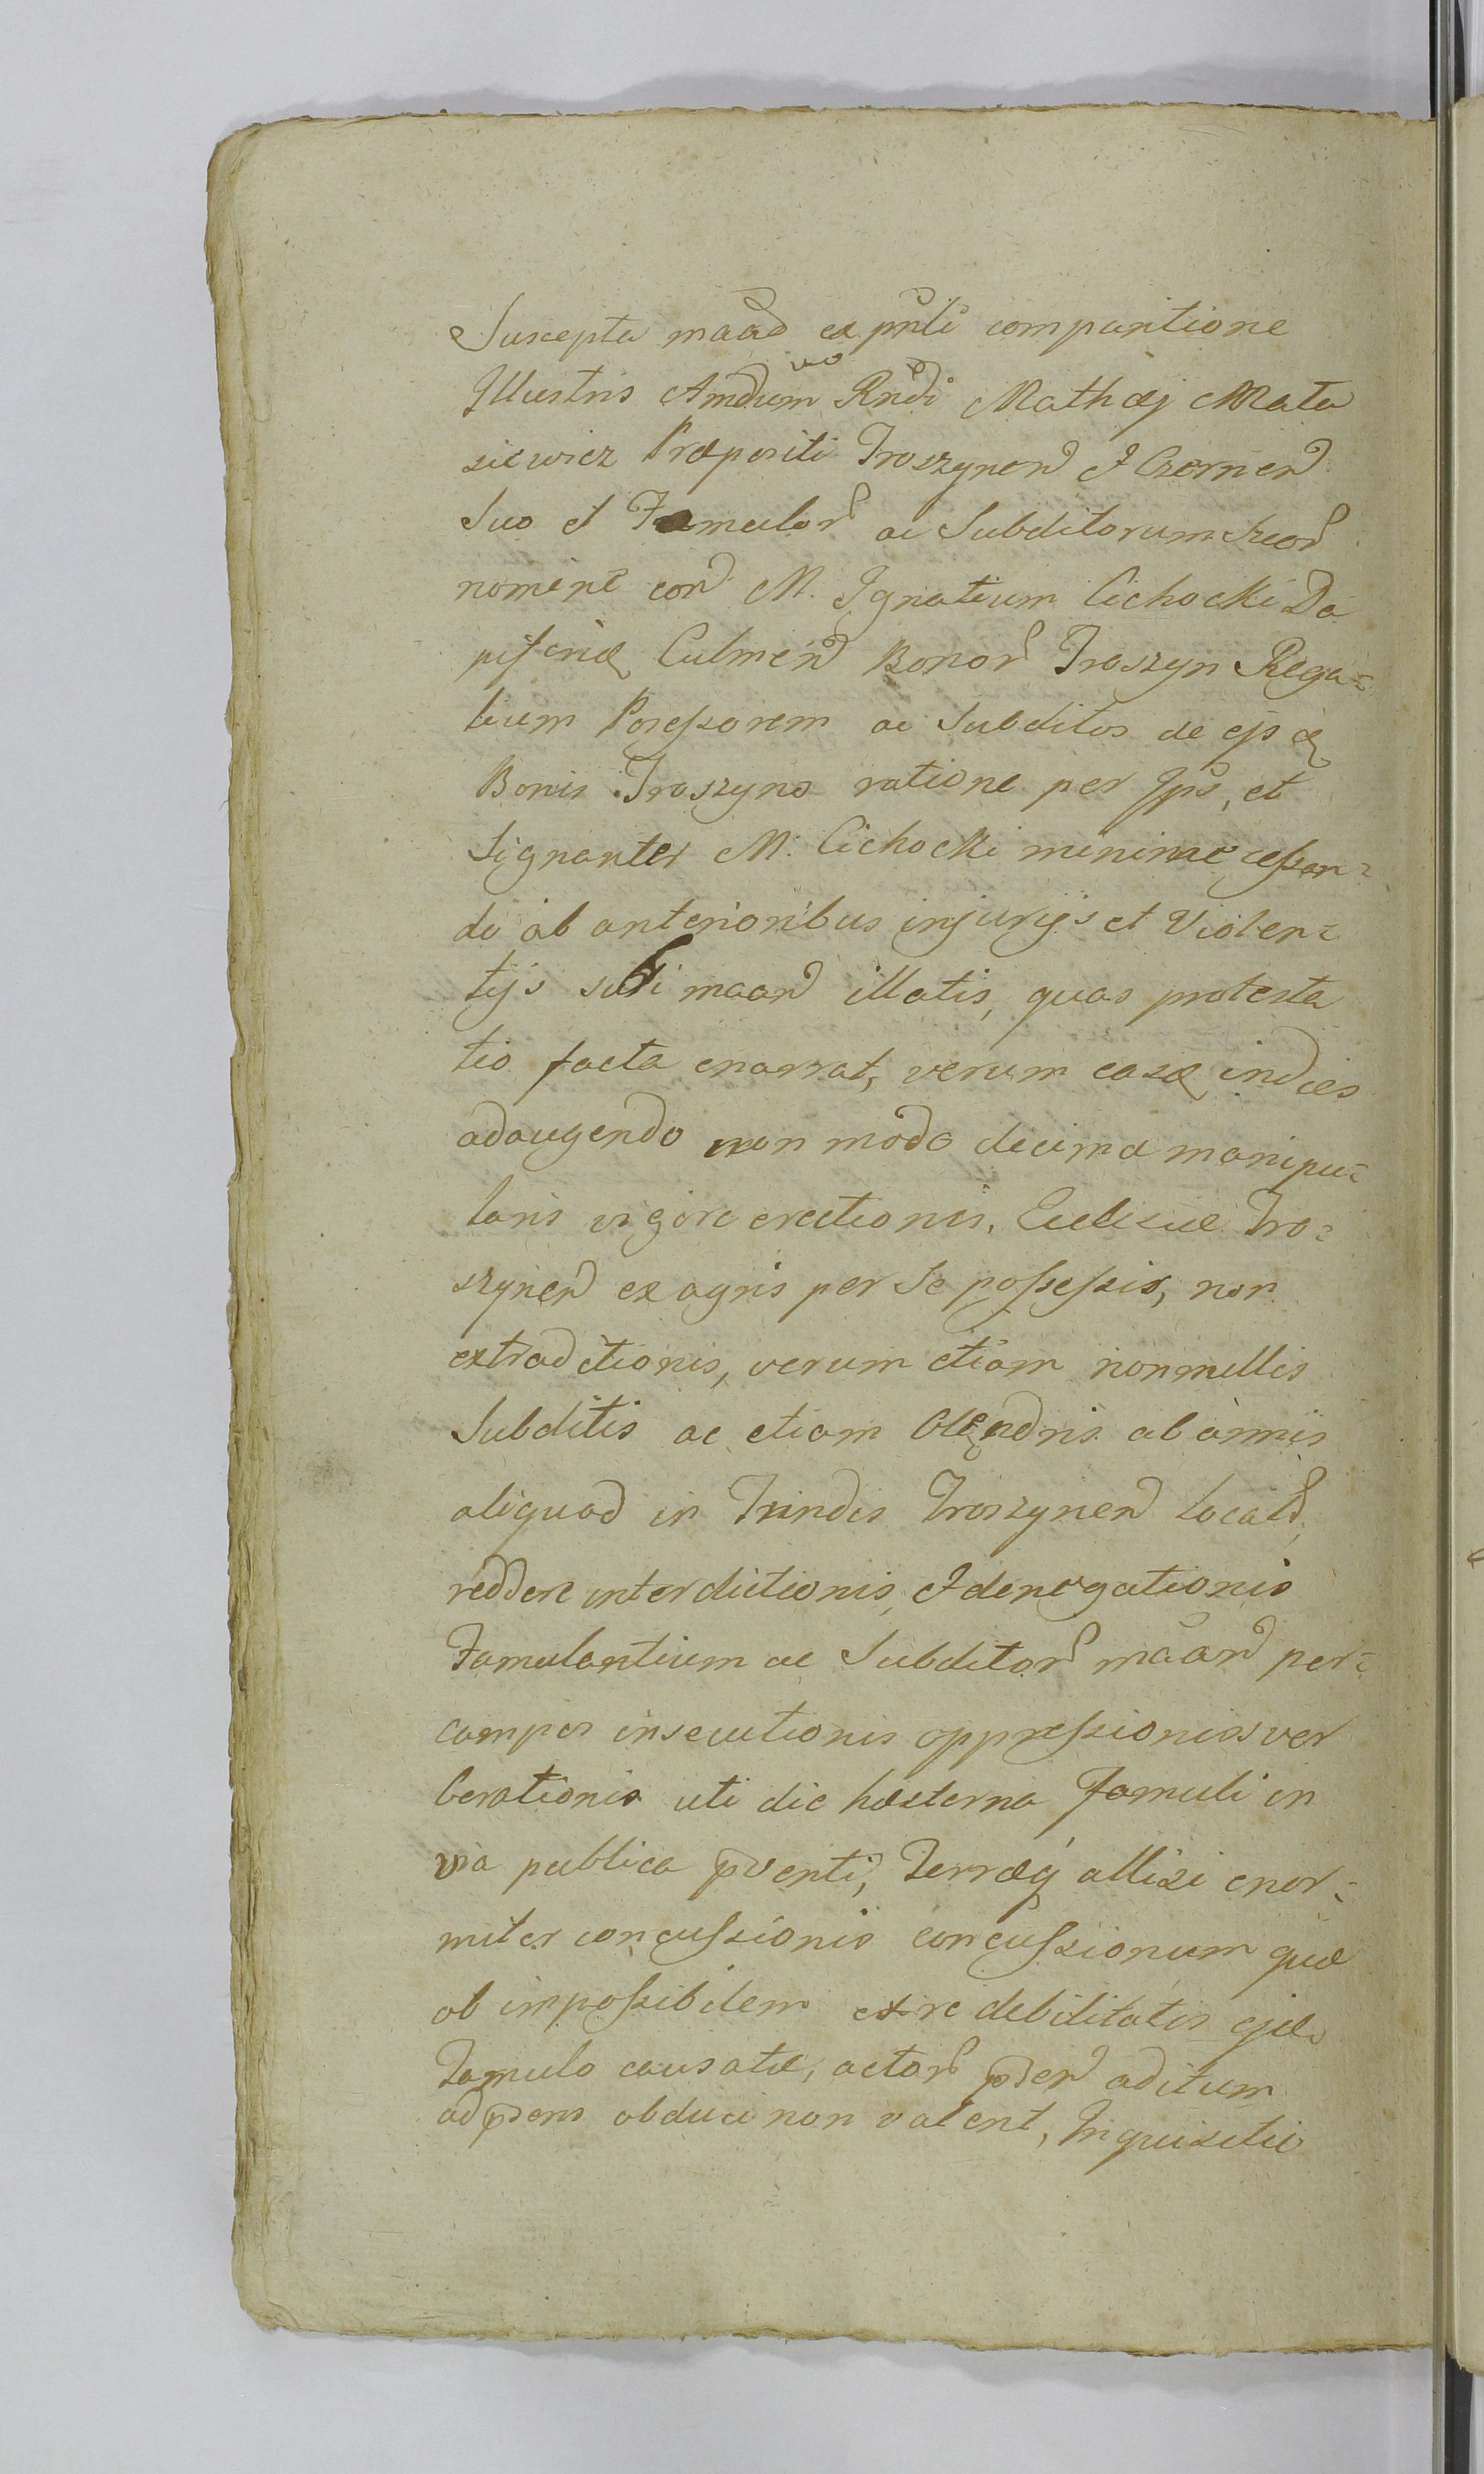 Suscepta maad ex pnli comparitione
Illustris Amdum Rndi Mathæj Mata
siewicz Præpositi Troszynen et Czernen
Suo et Famulor ac Subditorum Suor
nomine con M. Ignatium Cichocki Da
piferidæ Culmen Bonor Troszyn Rega=
lium Poseſsorem ac Subditos de ijsq
Bonis Troszyno ratione per Ips, et
Signanter M. Cichocki minime ceſsan=
do ab anterioribus injurijs et Violen=
tijs sibi maan illatis, quas protesta
tio facta enarrat, verum easq indies
adaugendo non modo decimæ manipu=
laris vigore erectionis, Eccleśiæ Tro=
szynen ex agris per Se poſseſsis, non
extraditionis, verum etiam nonnullis
Subditis ac etiam Olendris ab annis
aliquod in Fundis Troszynen Locatis,
reddere interdictionis, et denegationis
Famulantium ac Subditor maan per=
campos insecutionis oppreſsionis ver
berationis uti die hesterna Famuli in
via publica pventi, Terræq allisi enor=
miter concuſsionis concuſsionum quæ
ob impoſsibilem ex re debilitatis ejdo
Famulo causatæ, actor pden aditum
ad pdens obduci non valent, Inquisitio